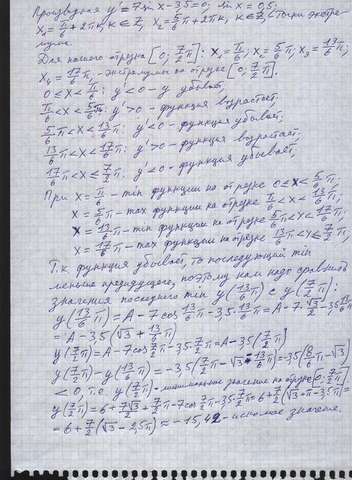 Производная y'=7sin x-3,5=0, sin x=0,5,
x₁=π/6+2πk, k∈Z, x₂=5/6π+2πk, k∈Z, точки экстре-
мума.
Для нашего отрезка [0; 7/2π]: x₁=π/6, x₂=5/6π, x₃=13/6π,
x₄=17/6π, -экстремумы на отрезке [0; 7/2π].
0<x<π/6: y'<0 - y убывает,
π/6<x<5/6π: y'>0 - функция возрастает,
5/6π<x<13/6π: y'<0 - функция убывает;
13/6π<x<17/6π: y'>0 - функция возрастает;
17/6π<x<7/2π: y'<0 - функция убывает,
При x=π/6 - min функции на отрезке 0<x<5/6π,
x=5/6π - max функции на отрезке π/6<x<13/6π,
x=13/6π - min функции на отрезке 5/6π<x<17/6π,
x=17/6π - max функции на отрезке 13/6π<x≤7/2π,
Т.к. функция убывает, то последующий min
меньше предыдущего, поэтому нам надо сравнить
значения последнего min y(13/6π) с y(7/2π):
y(13/6π)=A-7cos13/6π-3,5·13/6π=A-7·√3/2-3,5·13/6π=
=A-3,5(√3+13/6π)
y(7/2π)=A-7cos7/2π-3,5·7/2π=A-3,5(7/2π)
y(7/2π)-y(13/6π)=-3,5(7/2π-√3-13/6π)=-3,5(8/6π-√3)
<0, т.е. y(7/2π) - минимальное значение на отрезке [0; 7/2π]
y(7/2π)=6+7√3/2+7/2π-7cos7/2π-3,5·7/2π=6+7/2(√3+π-3,5π)=
=6+7/2(√3-2,5π)≈-15,42 - искомое значение.